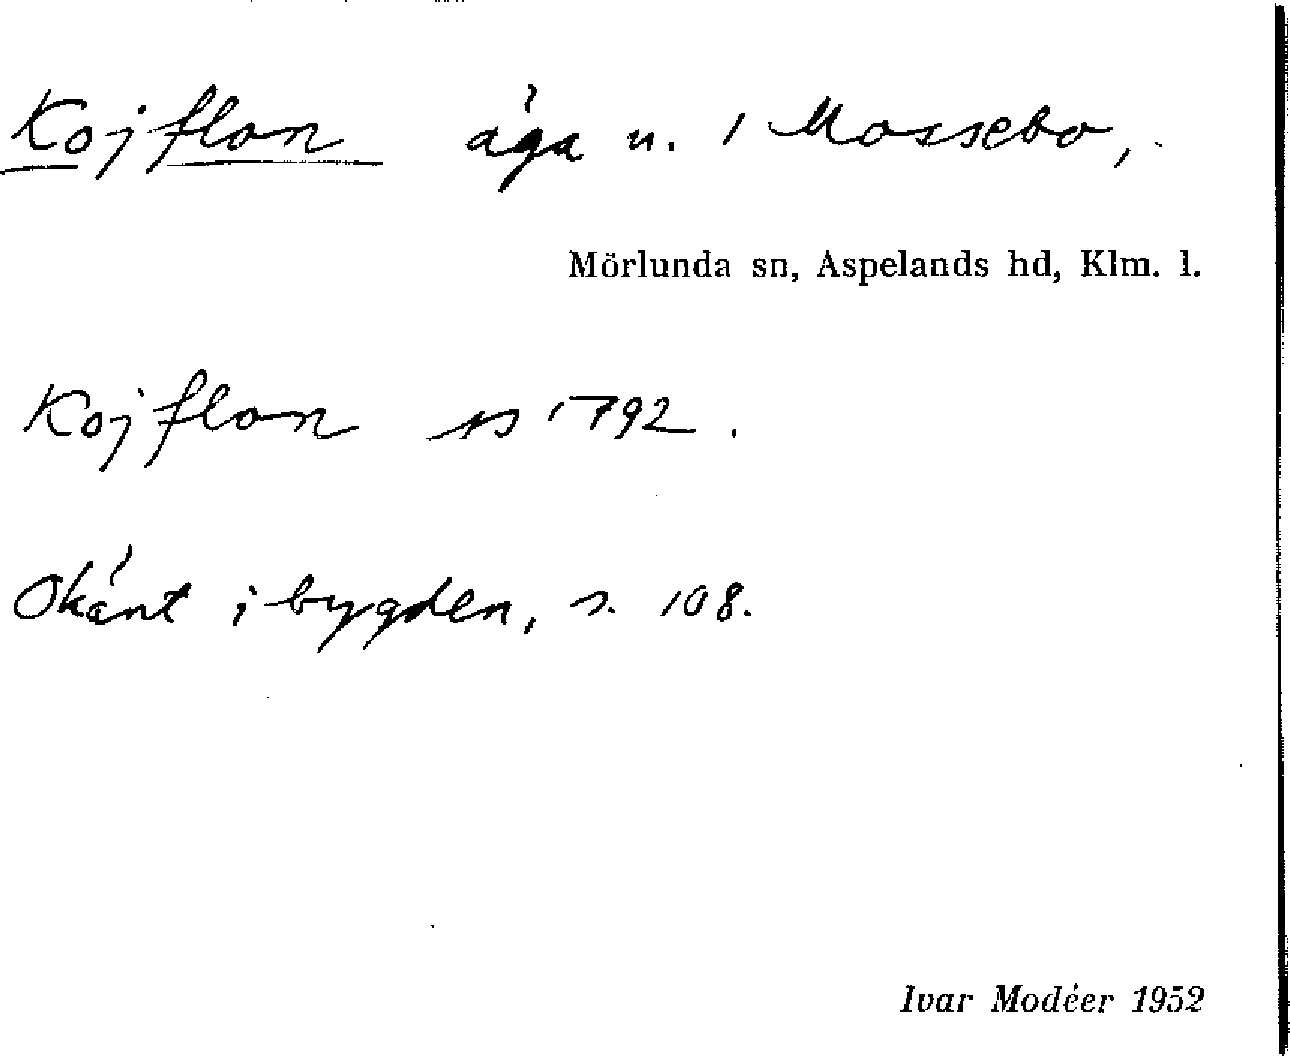 Kojflon äga u. 1 Mossebo,
Mörlunda sn, Aspelands hd, Klm. l.
Kojflon 1792.
Okänt i bygden, s. 108.
Ivar Modéer 1952